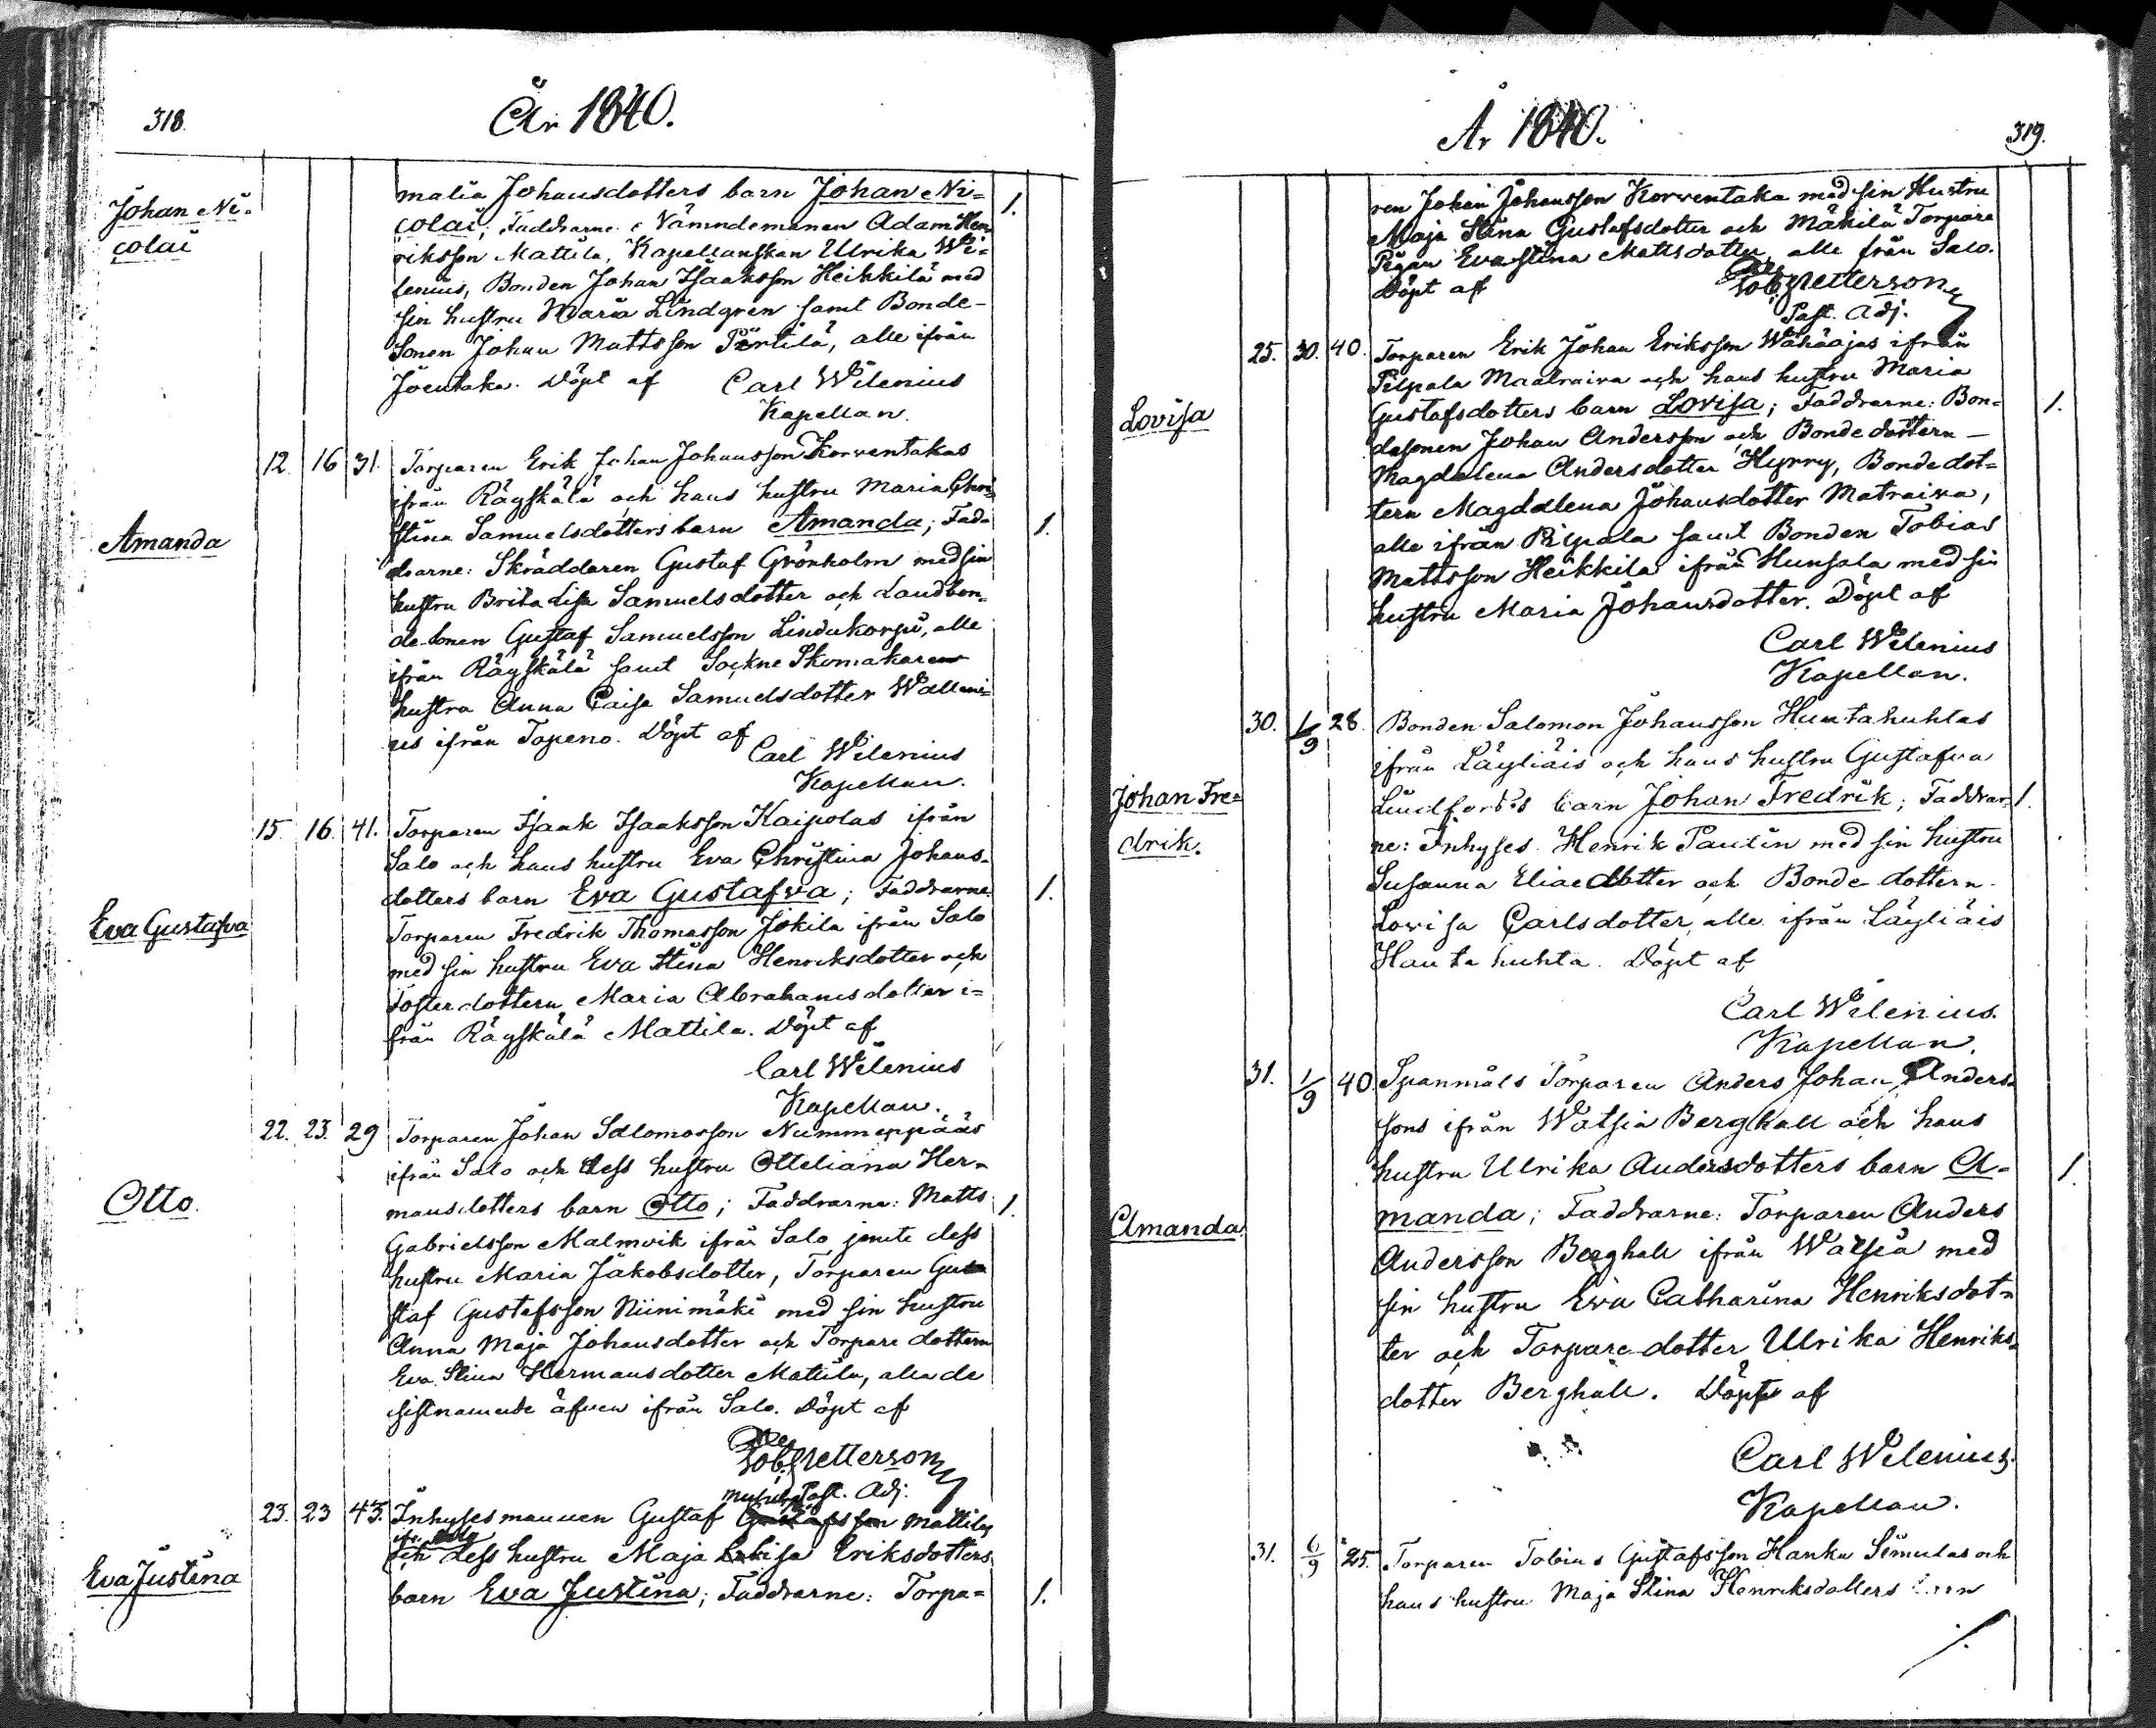 318.
År 1840.
Johan Ni-
colai
malia Johansdotters barn Johan Ni=
colai; Faddrarne: Nämndemannen Adam Hen
riksson Mattila, Kapellanskan Ulrika Wi-
lenius, Bonden Johan Isaaksson Heikkilä med
sin hustru Maria Lindgren samt Bonde-
Sonen Johan Mattsson Perttilä, alle ifrån
Joentaka. Döpt af Carl Wilenius
Kapellan.
1.
12. 16 31. Torparen Erik Johan Johansson Korventakas
ifrån Räyskälä och hans hustru Maria Chri-
stina Samuelsdotters barn Amanda; Fad-
drarne: Skräddaren Gustaf Grönholm med sin
hustru Brita Lisa Samuelsdotter och Landbon-
de-Sonen Gustaf Samuelsson Lindukorpi, alle
ifrån Räyskälä samt Sockne Skomakaren
hustru Anna Caisa Samuelsdotter Walleni-
us ifrån Topeno. Döpt af
Carl Wilenius
Kapellan.
Amanda
1.
15. 16. 41. Torparen Isaak Isaaksson Kaipolas ifrån
Salo och hans hustru Eva Christina Johans-
dotters barn Eva Gustafva; Faddrarne
Torparen Fredrik Thomasson Jokila ifrån Salo
med sin hustru Eva Stina Henriksdotter och
Fosterdottern Maria Abrahamsdotter i=
från Räyskälä Mattila. Döpt af
Carl Wilenius
Kapellan.
Eva Gustafva
1.
22. 23. 29 Torparen Johan Salomosson Nummenpääs
ifrån Salo och dess hustru Otteliana Her-
mansdotters barn Otto; Faddrarne: Matts
Gabrielsson Malmvik ifrån Salo jemte dess
hustru Maria Jakobsdotter, Torparen Gu
staf Gustafsson Niinimäki med sin hustru
Anna Maja Johansdotter och Torpare dottern
Eva Stina Hermansdotter Mattila, alla de
sistnämnde äfven ifrån Salo. Döpt af
Petterson
Past. Adj.
Otto.
1.
23. 23 43. Inhyses mannen Gustaf Gustafsson Mattilas
och dess hustru Maja Lovisa Eriksdotters
barn Eva Justina; Faddrarne: Torpa=
Eva Justina
1.
År 1840.
319.
ren Johan Johansson Korventaka med sin Hustru
Maja Stina Gustafsdotter och Mäkilä Torpare
Pigan Eva Stina Mattsdotter, alle från Salo.
Döpt af Petterson
Past. Adj.
25. 30. 40. Torparen Erik Johan Eriksson Wähäojas ifrån
Pilpala Maatraiva och hans hustru Maria
Gustafsdotters barn Lovisa; Faddrarne: Bon-
desonen Johan Andersson och Bondedottern
Magdalena Andersdotter Hyrry, Bondedot-
tern Magdalena Johansdotter Matraiva,
alle ifrån Pilpala samt Bonden Tobias
Mattsson Heikkilä ifrån Hunsala med sin
hustru Maria Johansdotter. Döpt af
Carl Wilenius
Kapellan.
Lovisa
1.
30. 1/9 28. Bonden Salomon Johansson Hautahuhtas
ifrån Läyliäis och hans hustru Gustafva
Lindforss barn Johan Fredrik; Faddrar-
ne: Inhyses Henrik Paulin med sin hustru
Susanna Eliaedotter och Bonde dottern
Lovisa Carlsdotter, alle ifrån Läyliäis
Hautahuhta. Döpt af
Carl Wilenius.
Kapellan.
Johan Fre=
drik.
1.
31. 1/9 40. Spanmåls Torparen Anders Johan Anders-
sons ifrån Watsia Berghall och hans
hustru Ulrika Andersdotters barn A-
manda; Faddrarne: Torparen Anders
Andersson Berghall ifrån Watsia med
sin hustru Eva Catharina Henriksdot-
ter och Torpare dotter Ulrika Henriks-
dotter Berghall. Döpt af
Carl Wilenius.
Kapellan.
Amanda
1.
31. 6/9 25. Torparen Tobias Gustafsson Hanka Simulas och
hans hustru Maja Stina Henriksdotters barn